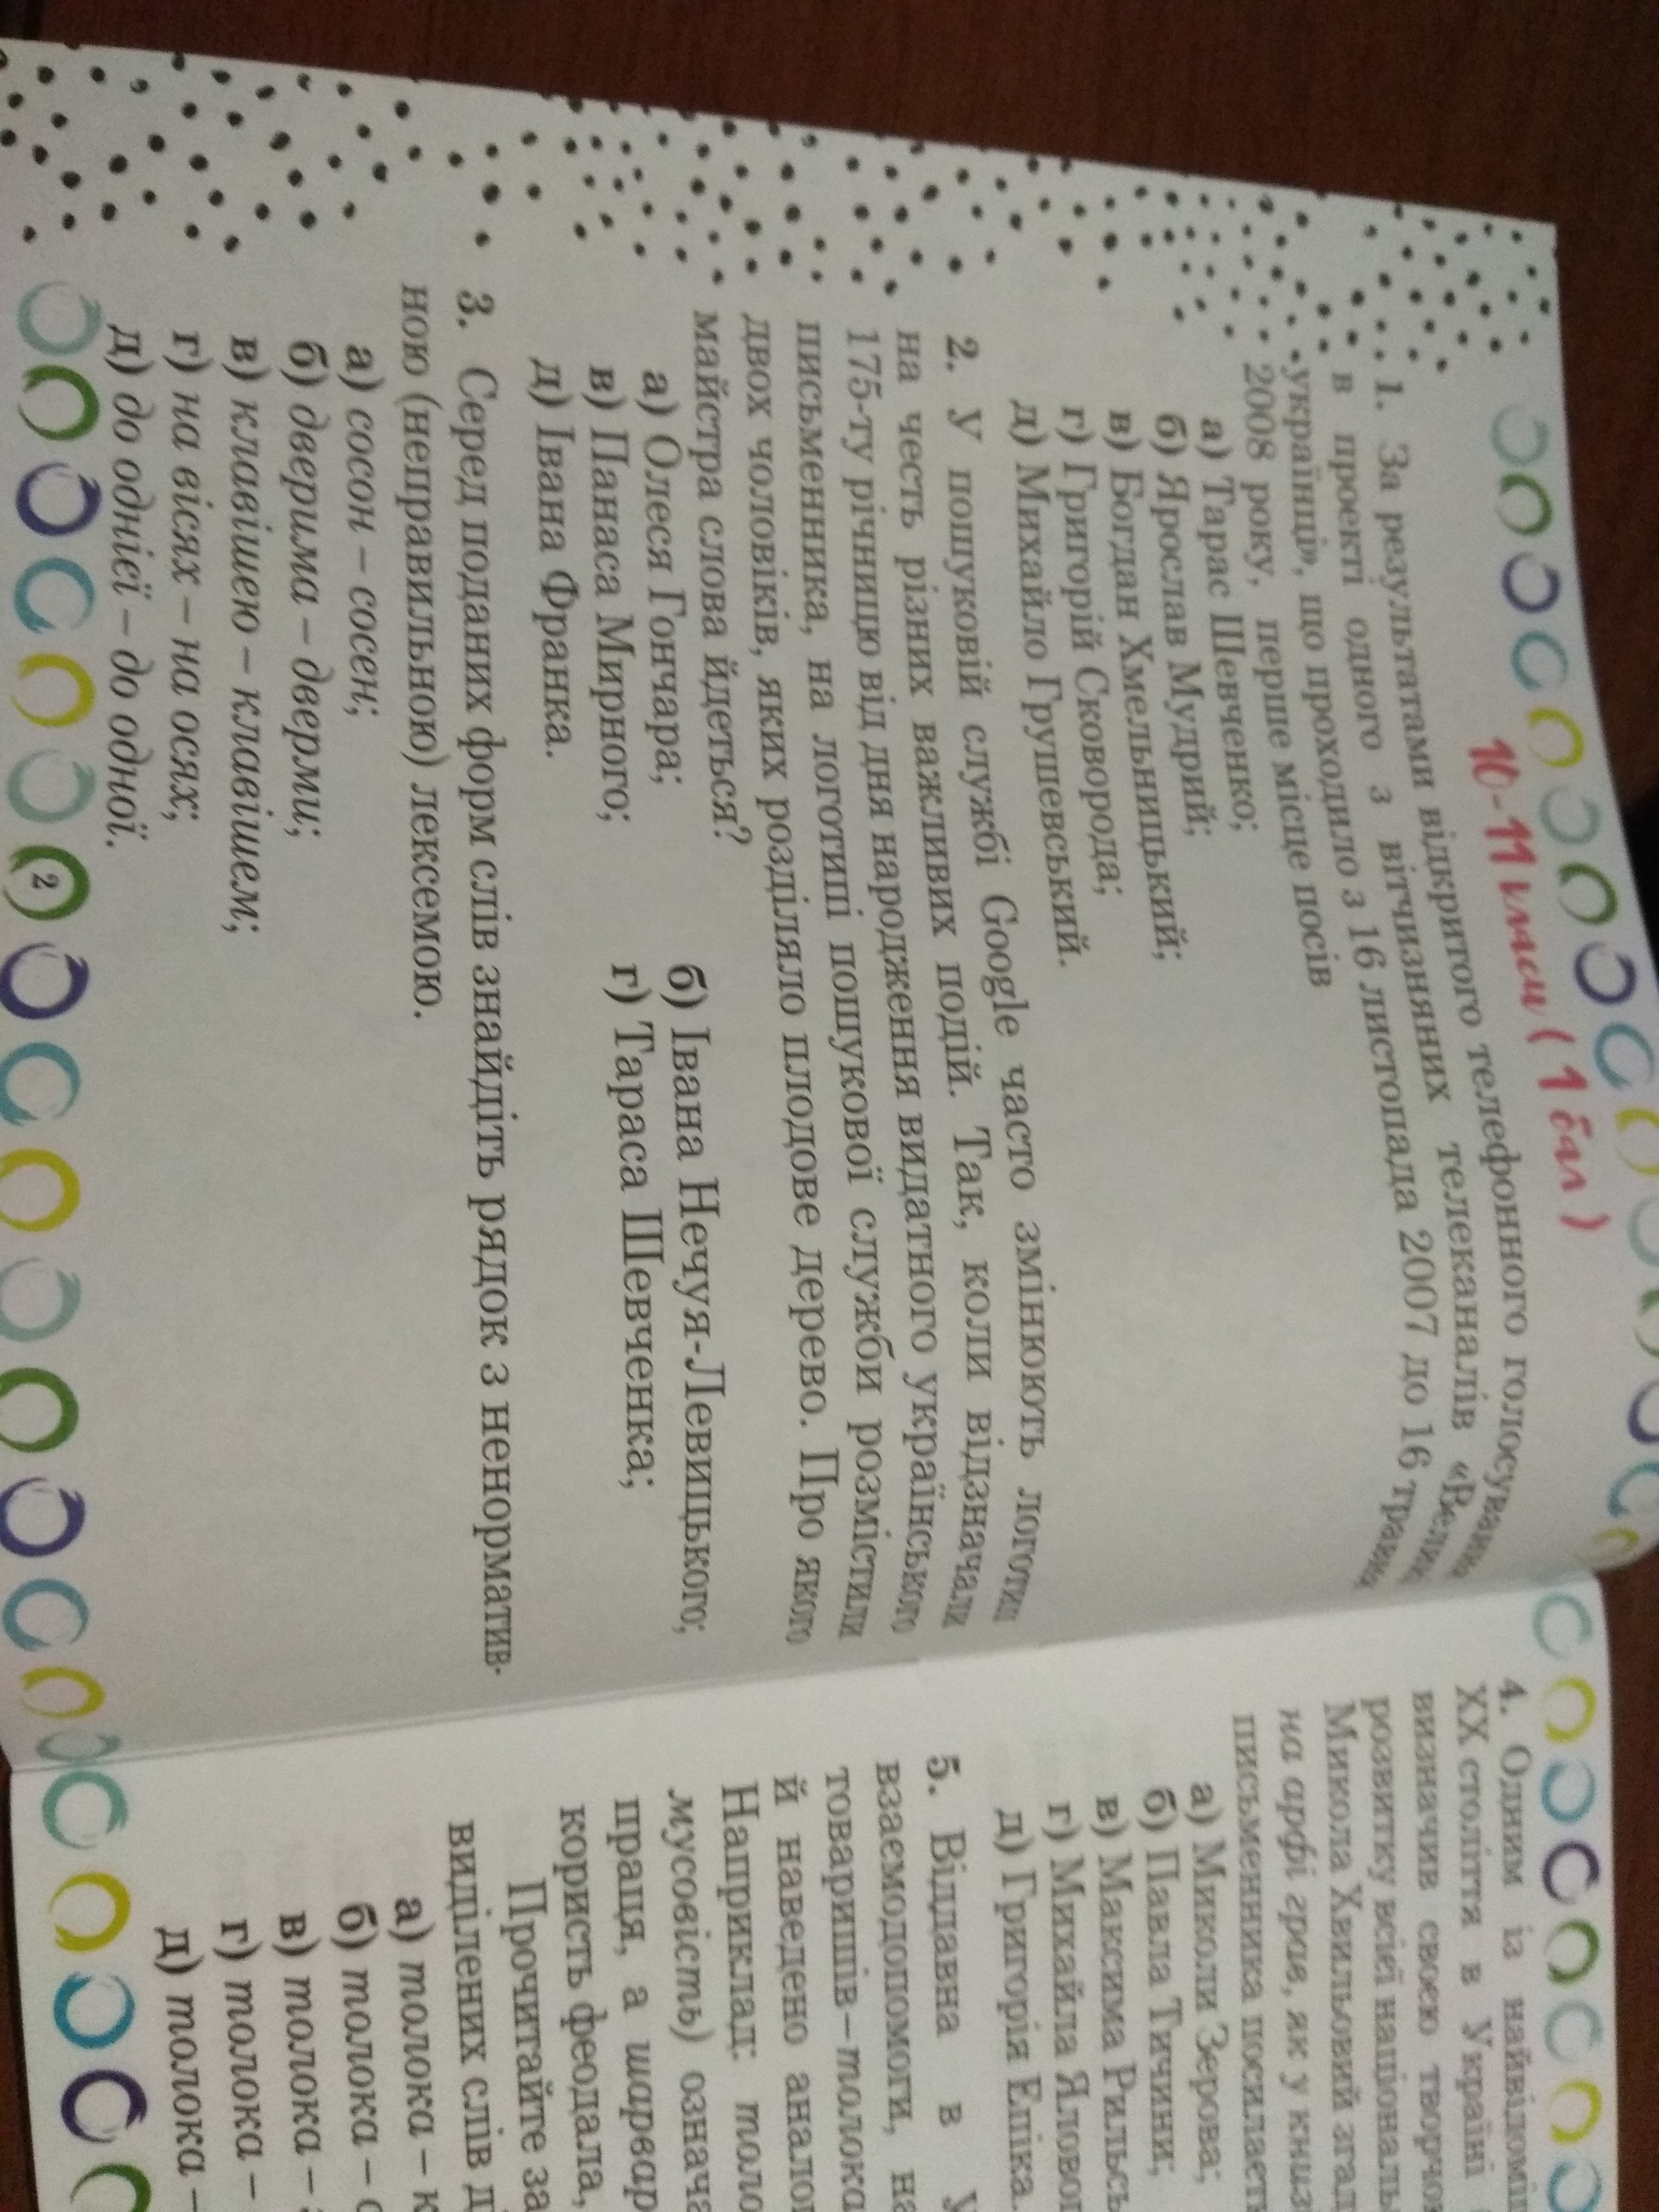 10-11 класи (1 бал)
1. За результатами відкритого телефонного голосування
в проекті одного з вітчизняних телеканалів «Великі
українці», що проходило з 16 листопада 2007 до 16 травня
2008 року, перше місце посів
а) Тарас Шевченко;
б) Ярослав Мудрий;
в) Богдан Хмельницький;
г) Григорій Сковорода;
д) Михайло Грушевський.
2. У пошуковій службі Google часто змінюють логотип
на честь різних важливих подій. Так, коли відзначали
175-ту річницю від дня народження видатного українського
письменника, на логотипі пошукової служби розмістили
двох чоловіків, яких розділяло плодове дерево. Про якого
майстра слова йдеться?
а) Олеся Гончара; б) Івана Нечуя-Левицького;
в) Панаса Мирного; г) Тараса Шевченка;
д) Івана Франка.
3. Серед поданих форм слів знайдіть рядок з ненорматив-
ною (неправильною) лексемою.
а) сосон – сосен;
б) дверима – дверми;
в) клавішею – клавішем;
г) на вісях – на осях;
д) до однієї – до одної.
2
4. Одним із
XX століття в Україні
визначив своєю
розвитку всієї
Микола Хвильовий
на арфі грав, як у
письменника
а) Миколи Зерова;
б) Павла Тичини;
в) Максима
г) Михайла
д) Григорія Епіка.
5. Віддавна в
взаємодопомоги,
товаришів – толока
й наведено
Наприклад:
мусовість)
праця, а
користь феодала,
Прочитайте
виділених слів
а) толока –
б) толока –
в) толока –
г) толока –
д) толока –